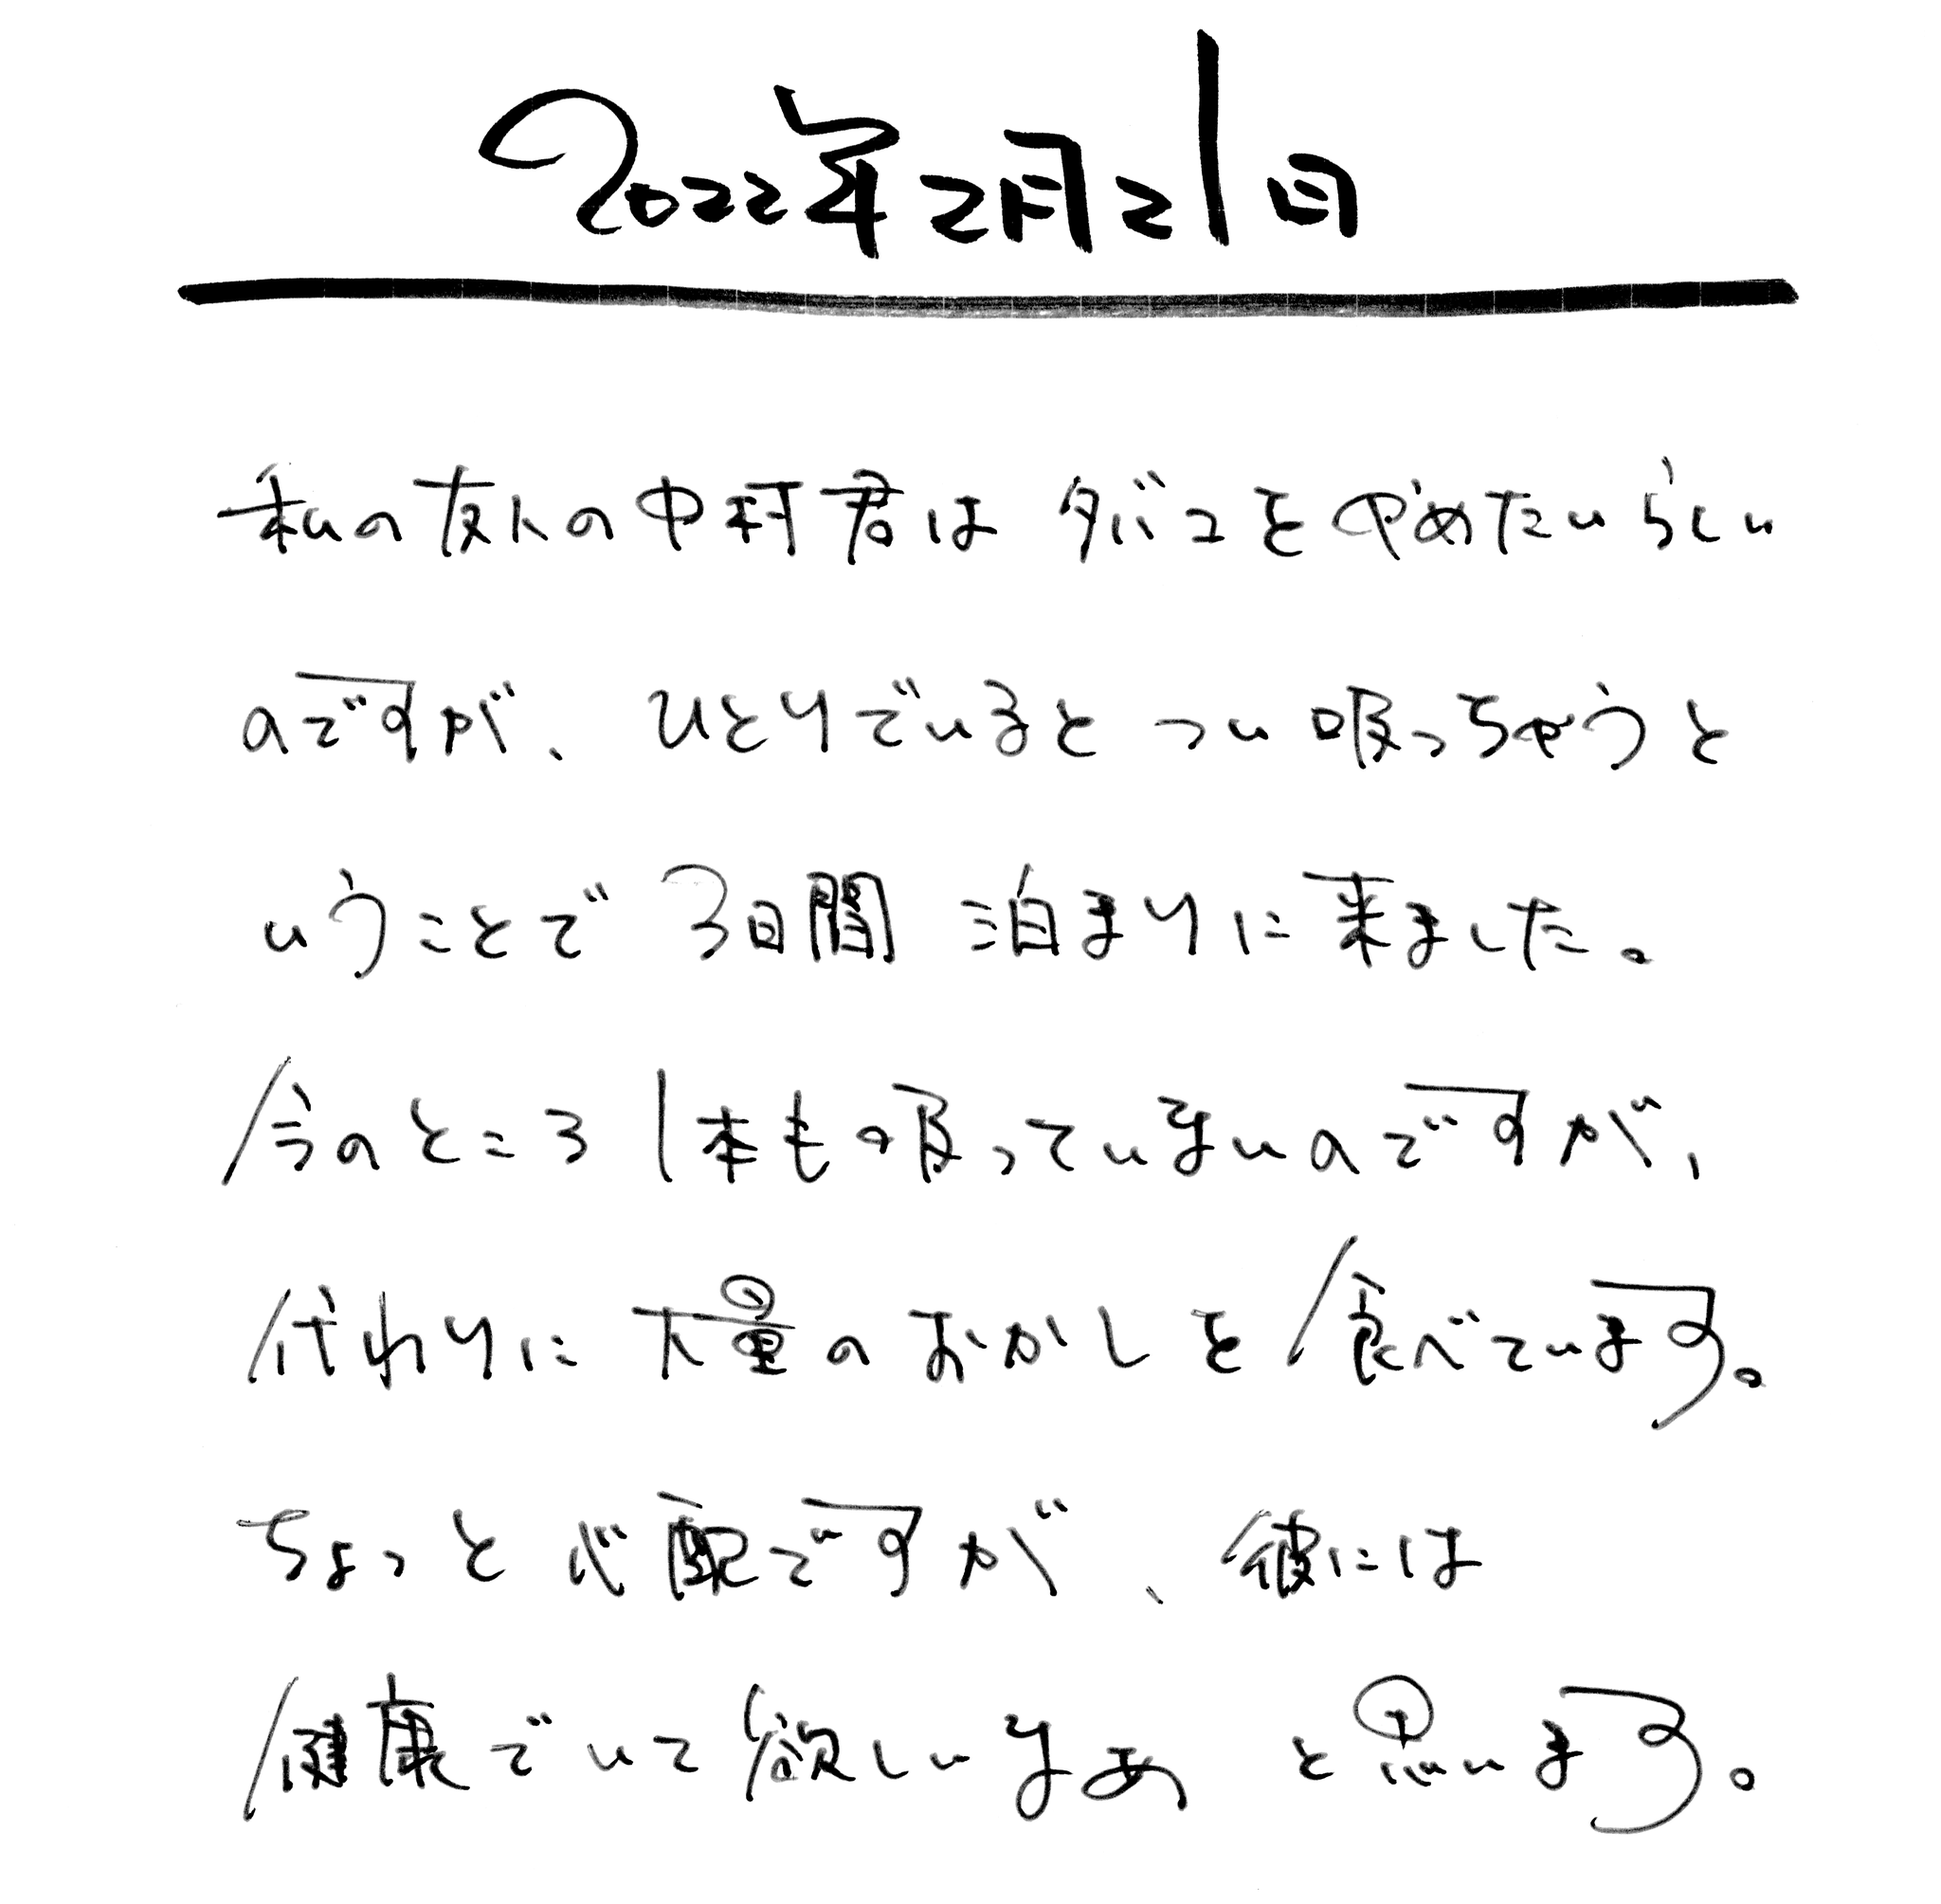 2022年2月21日
私の友人の中村君はタバコをやめたいらしい
のですが、ひとりでいるとつい吸っちゃうと
いうことで3日間泊まりに来ました。
今のところ1本も吸っていないのですが、
代わりに大量のおかしを食べています。
ちょっと心配ですが、彼には
健康でいて欲しいなぁと思います。